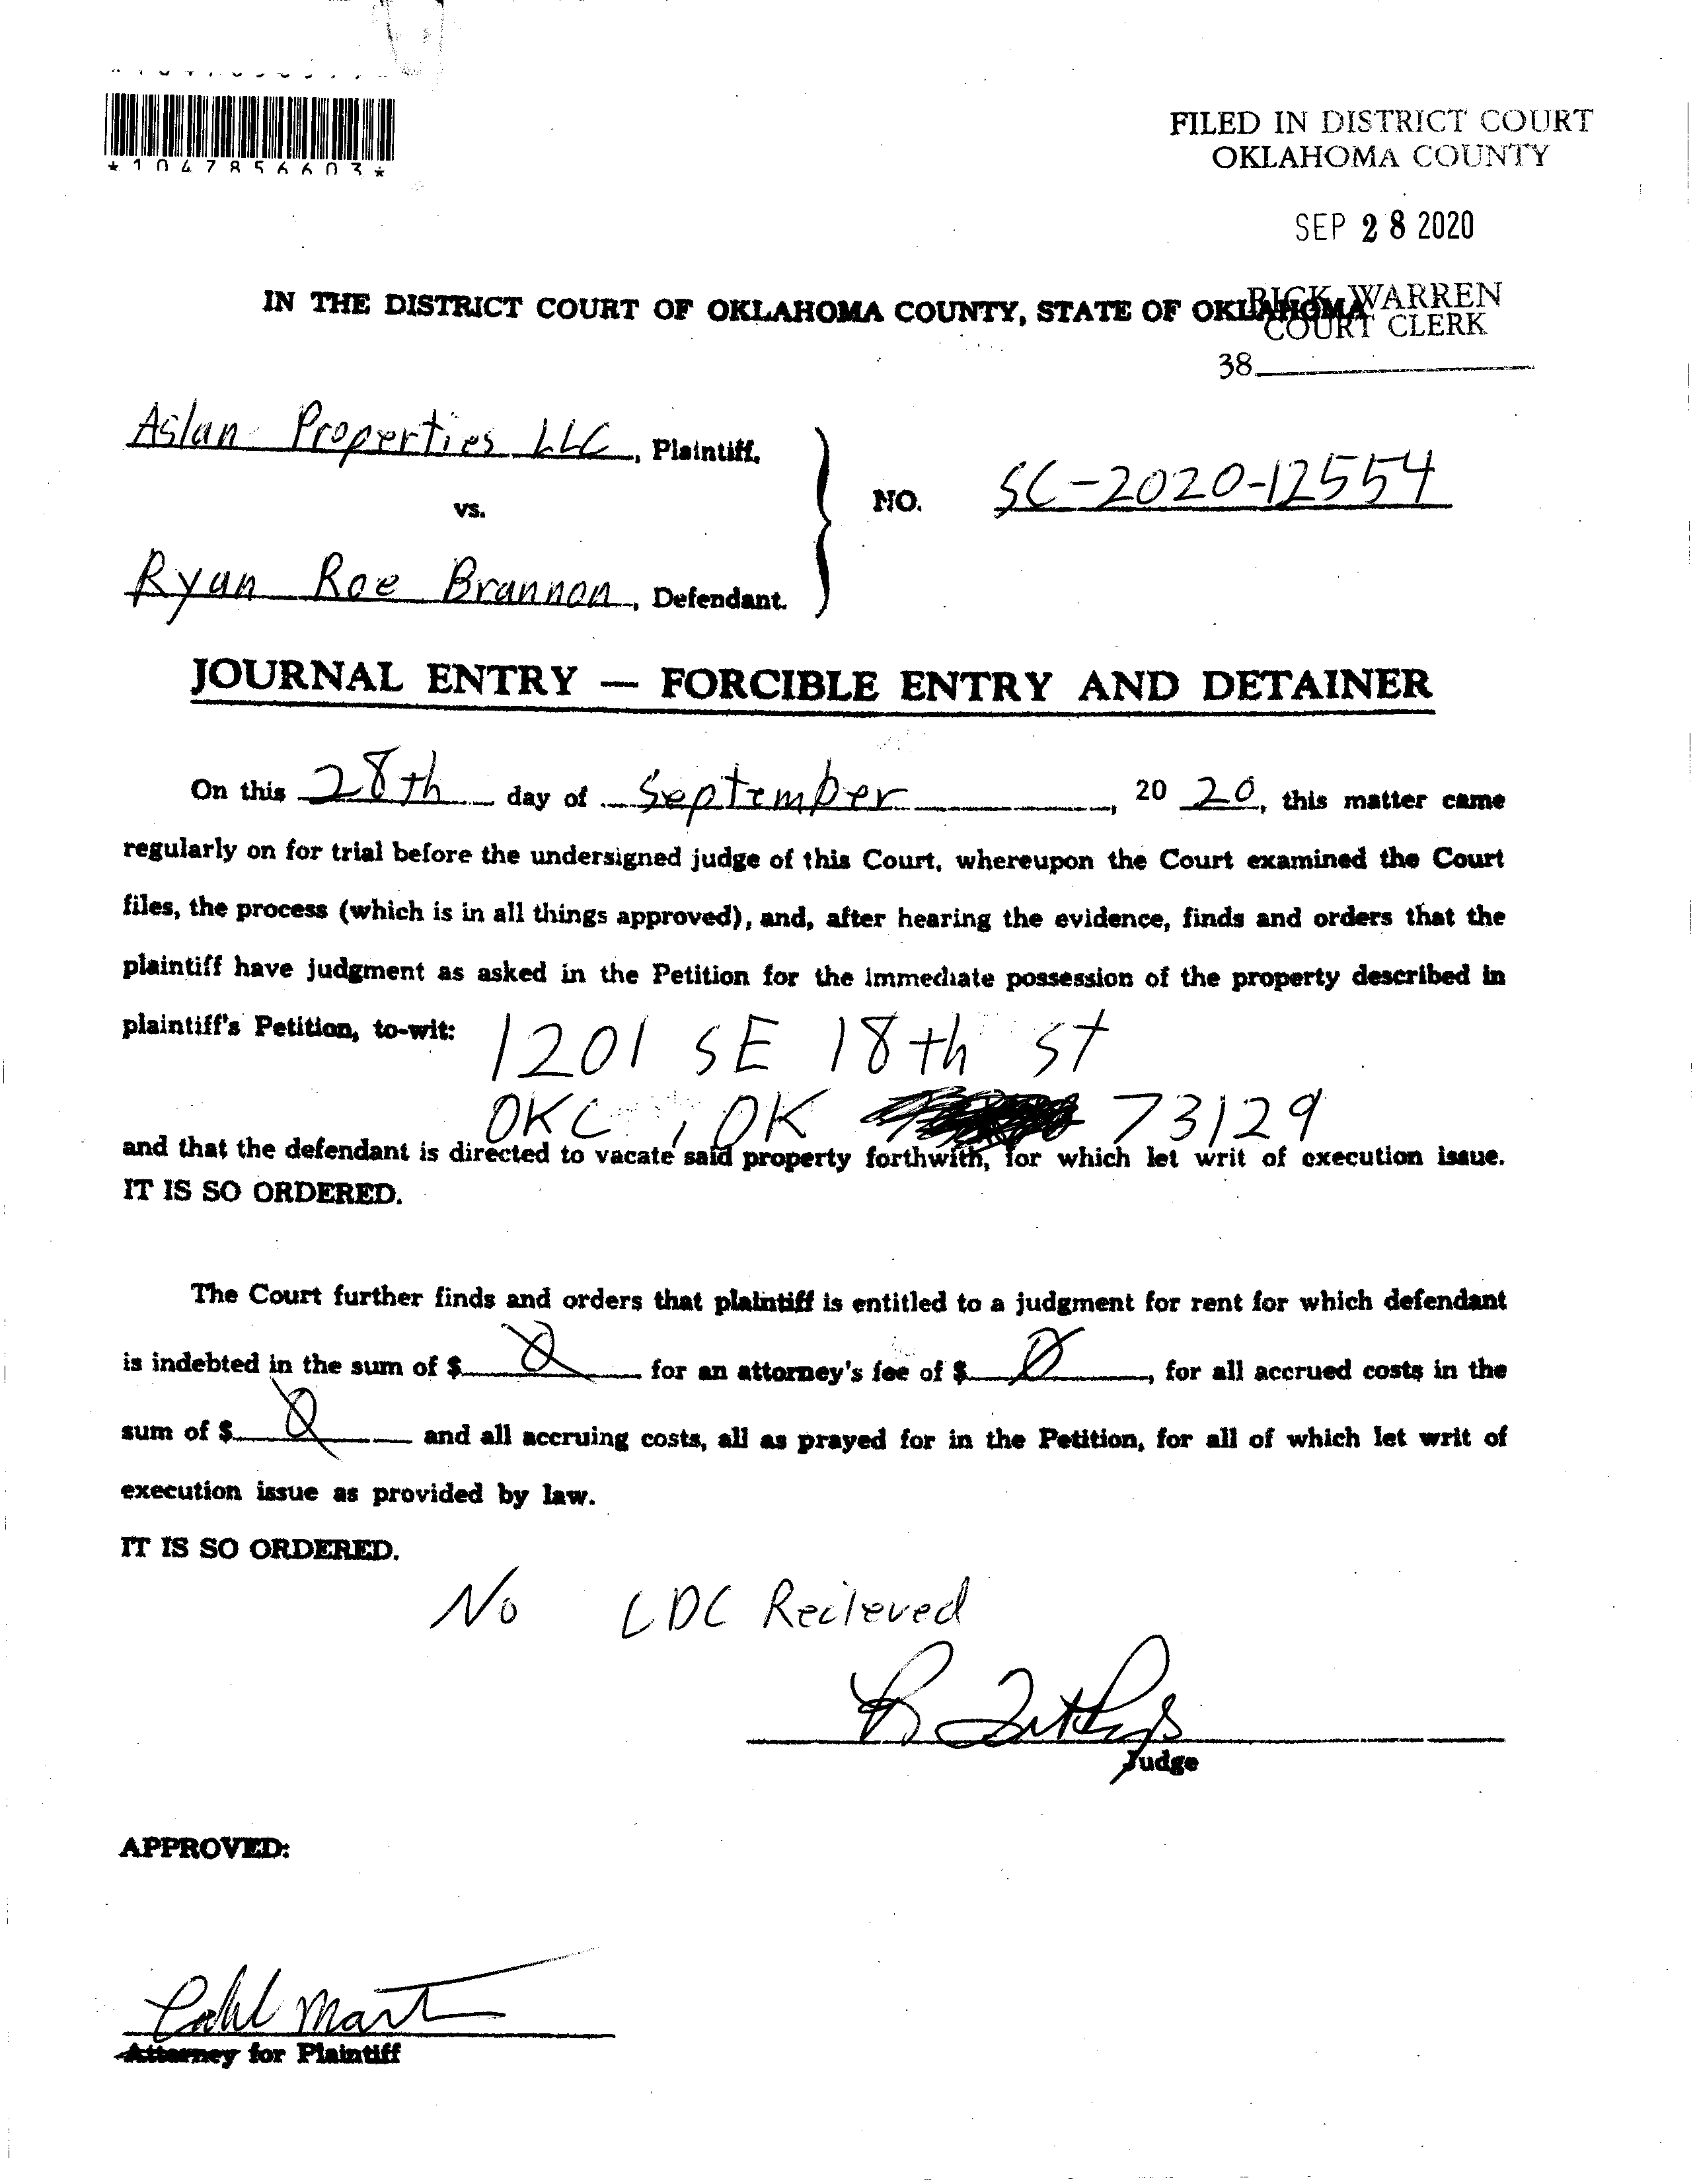 *1047856603*
FILED IN DISTRICT COURT
OKLAHOMA COUNTY
SEP 28 2020
RICK WARREN
COURT CLERK
38
IN THE DISTRICT COURT OF OKLAHOMA COUNTY, STATE OF OKLAHOMA
Aslan Properties LLC, Plaintiff,
vs.
NO. SC-2020-12554
Ryan Roe Brannon, Defendant.
JOURNAL ENTRY — FORCIBLE ENTRY AND DETAINER
On this 28th day of September, 20 20, this matter came
regularly on for trial before the undersigned judge of this Court, whereupon the Court examined the Court
files, the process (which is in all things approved), and, after hearing the evidence, finds and orders that the
plaintiff have judgment as asked in the Petition for the immediate possession of the property described in
plaintiff's Petition, to-wit: 1201 SE 18th St
OKC, OK 73129
and that the defendant is directed to vacate said property forthwith, for which let writ of execution issue.
IT IS SO ORDERED.
The Court further finds and orders that plaintiff is entitled to a judgment for rent for which defendant
is indebted in the sum of $ 0 for an attorney's fee of $ 0, for all accrued costs in the
sum of $ 0 and all accruing costs, all as prayed for in the Petition, for all of which let writ of
execution issue as provided by law.
IT IS SO ORDERED.
No LDC Recieved
Judge
APPROVED:
Attorney for Plaintiff